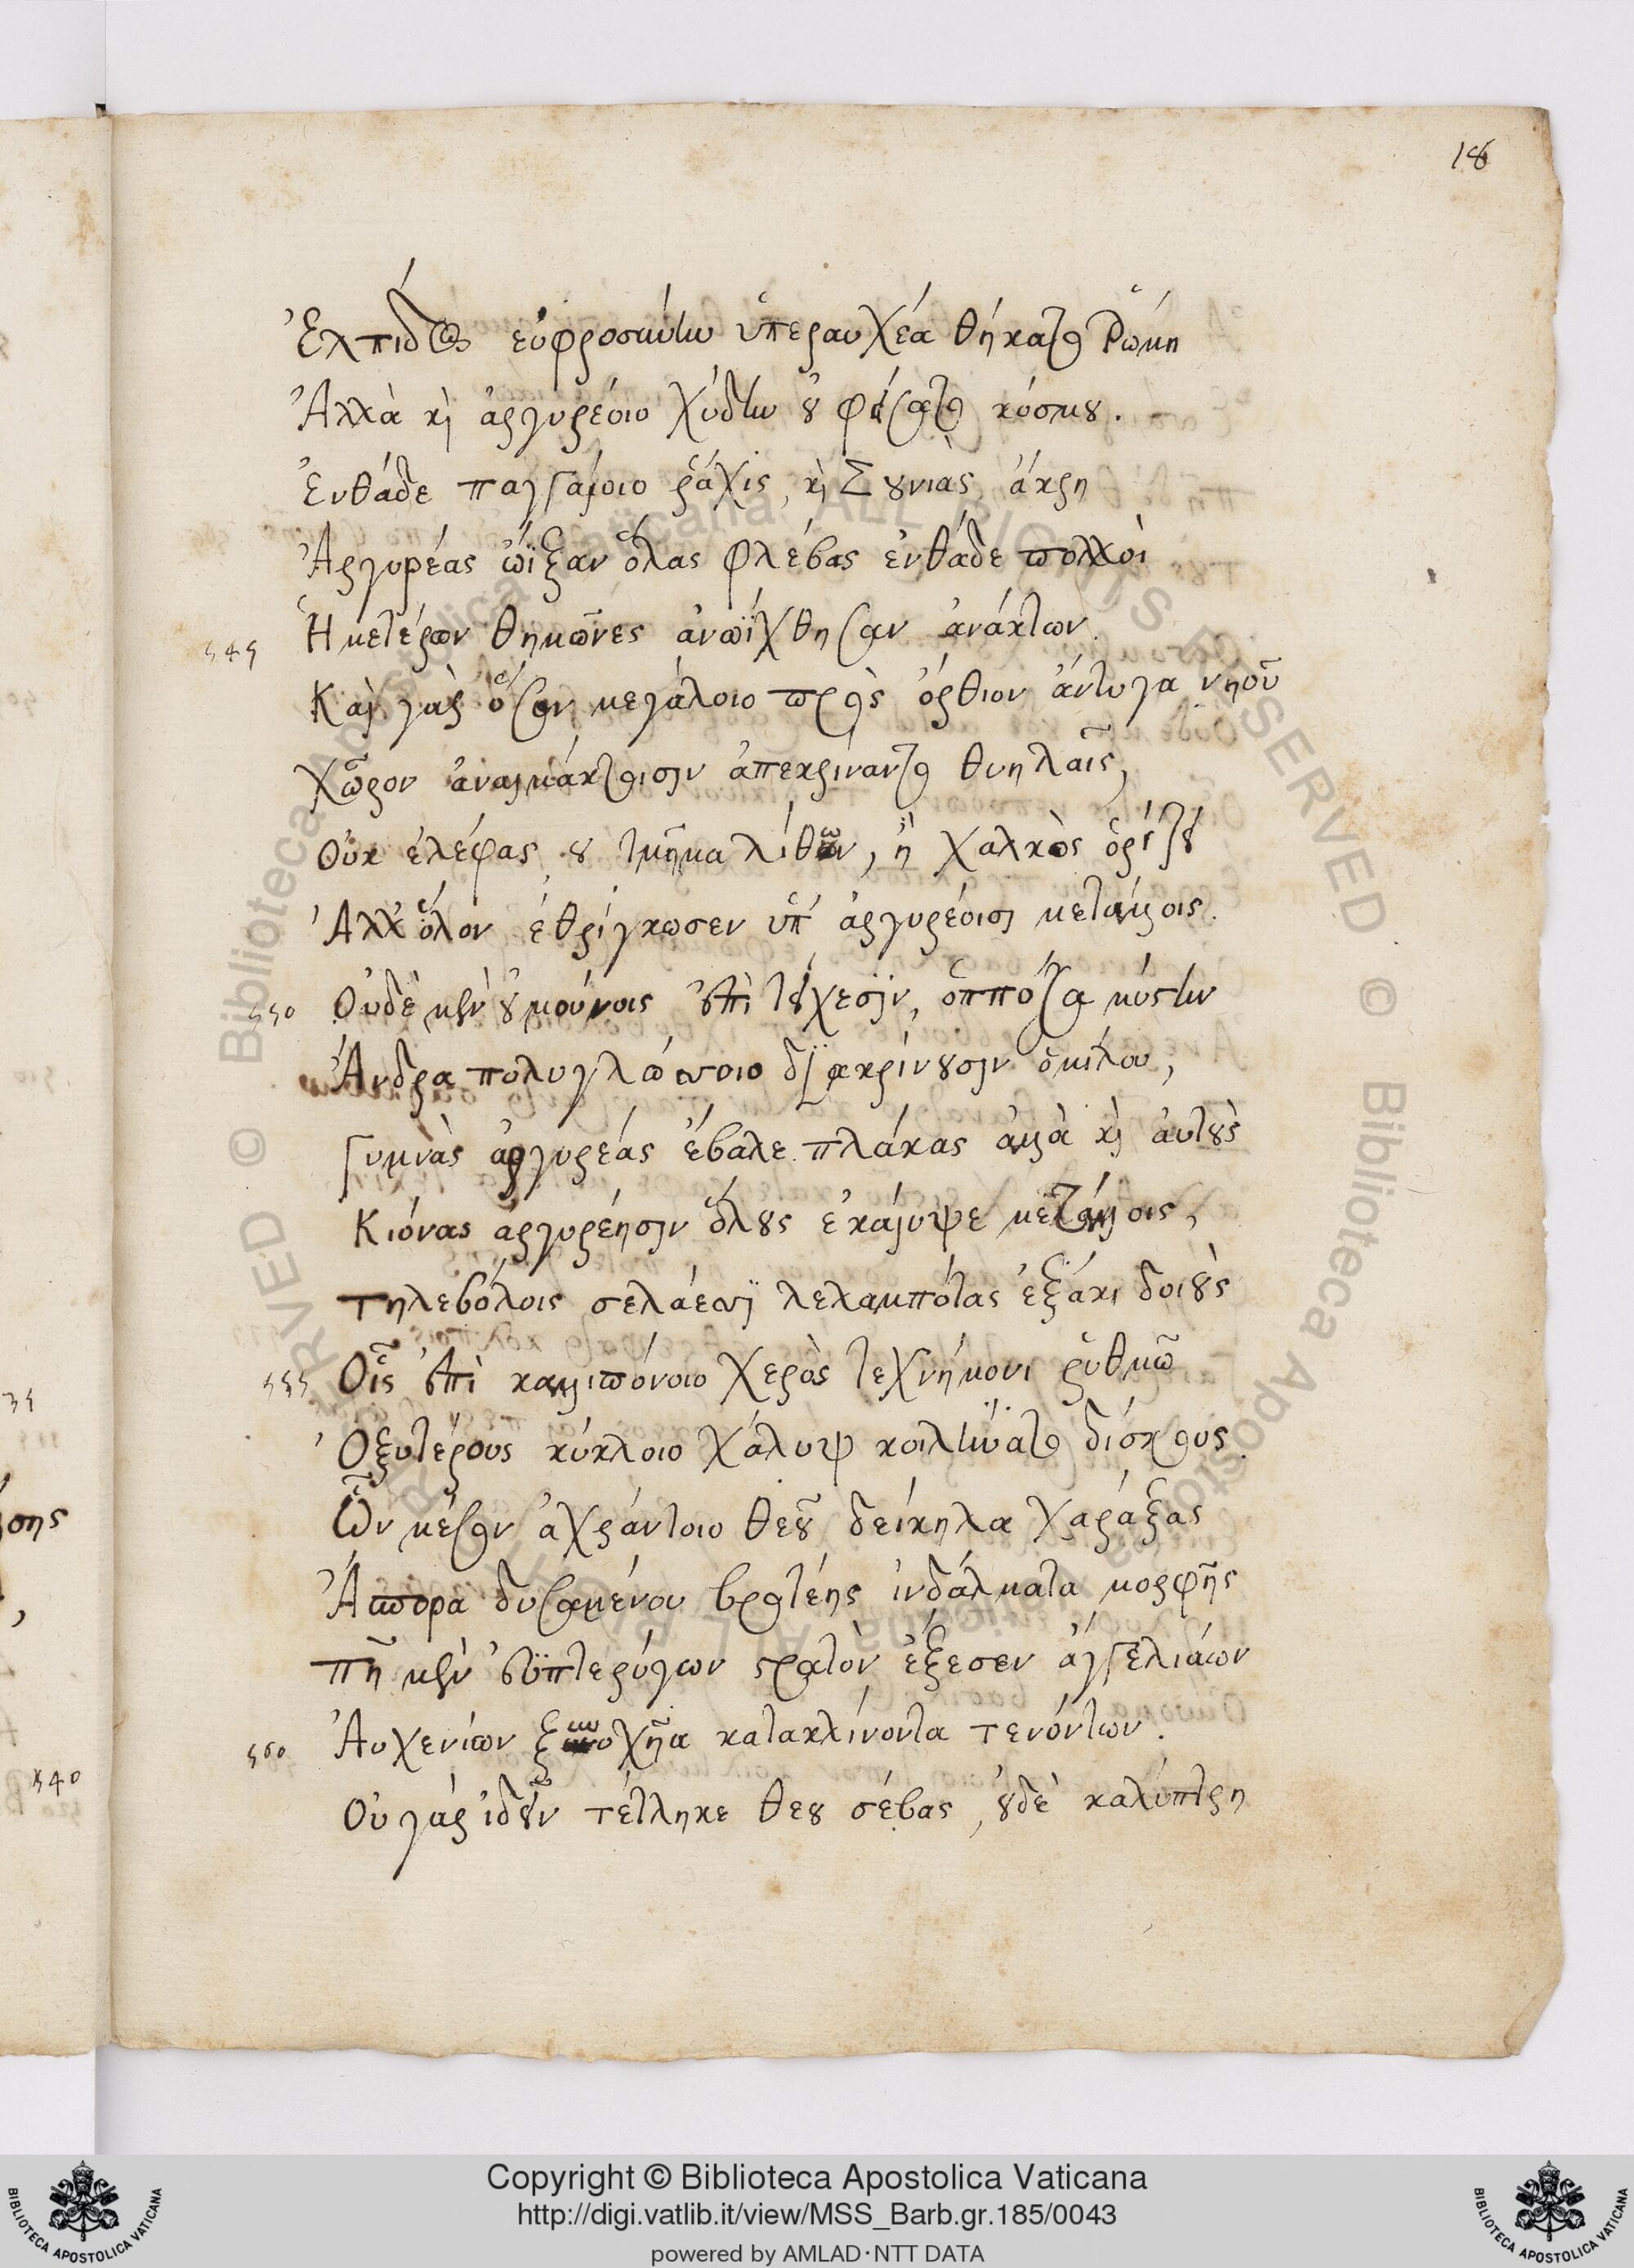 18
Ἐλπίδος εὐφροσύνην ὑπεραυχέα θήκατο Ῥώμη
Ἀλλὰ καὶ ἀργυρέοιο χύδην οὐ φείσατο κόσμου.
Ἐνθάδε παγγαίοιο ῥάχις, καὶ Σουνιὰς ἄκρη
Ἀργυρέας ὤϊξαν ὅλας φλέβας ἐνθάδε πολλοὶ
545 Ἡμετέρων θημῶνες ἀνωΐχθησαν ἀνάκτων.
Καὶ γὰρ ὅσον μεγάλοιο πρὸς ὄρθιον ἄντυγα νηοῦ
Χῶρον ἀναιμάκτοισιν ἀπεκρίναντο θυηλαῖς,
Οὐκ ἐλέφας, οὐ τμῆμα λίθων, ἢ χαλκὸς ὁρίζει
Ἀλλ' ὅλον ἐθρίγκωσεν ὑπ' ἀργυρέοισι μετάλλοις.
550 Οὐδὲ μὲν οὐ μούνοις ἐπὶ τείχεσιν, ὁππόσα μύστην
Ἄνδρα πολυγλώσσοιο διακρίνουσιν ὁμίλου,
Γυμνὰς ἀργυρέας ἔβαλε πλάκας ἀλλὰ καὶ αὐτοὺς
Κιόνας ἀργυρέησιν ὅλους ἐκάλυψε μετάλλοις,
τηλεβόλοις σελάεσσι λελαμπότας ἑξάκι δοιοὺς
555 Οἷς ἐπὶ καλλιπόνοιο χερὸς τεχνήμονι ῥυθμῷ
Ὀξυτέρους κύκλοιο χάλυψ κοιλήνατο δίσκους.
Ὧν μέσον ἀχράντοιο θεοῦ δείκηλα χαράξας
Ἄσπορα δυσαμένου βροτέης ἰνδάλματα μορφῆς
πῆ μὲν ἐϋπτερύγων στρατὸν ἔξεσεν ἀγγελιάων
560 Αὐχενίων ξυνοχῆα κατακλίνοντα τενόντων.
Οὐ γὰρ ἰδεῖν τέτληκε θεοῦ σέβας, οὐδὲ καλύπτρη
540
Copyright © Biblioteca Apostolica Vaticana
http://digi.vatlib.it/view/MSS_Barb.gr.185/0043
powered by AMLAD·NTT DATA